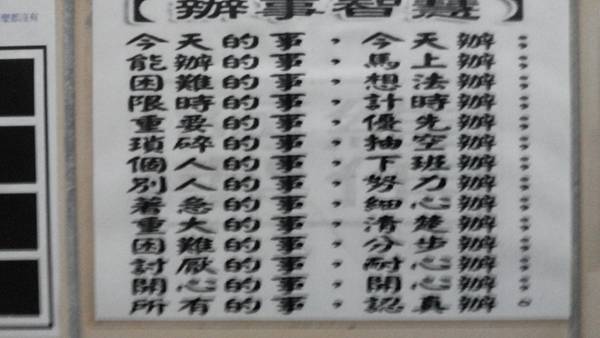 【辦事智慧】
今天的事，今天辦；
能辦的事，馬上辦；
困難的事，想法辦；
限時的事，計時辦；
重要的事，優先辦；
瑣碎的事，抽空辦；
個人的事，下班辦；
別人的事，努力辦；
著急的事，細心辦；
重大的事，清楚辦；
困難的事，分步辦；
討厭的事，耐心辦；
開心的事，開心辦；
所有的事，認真辦。